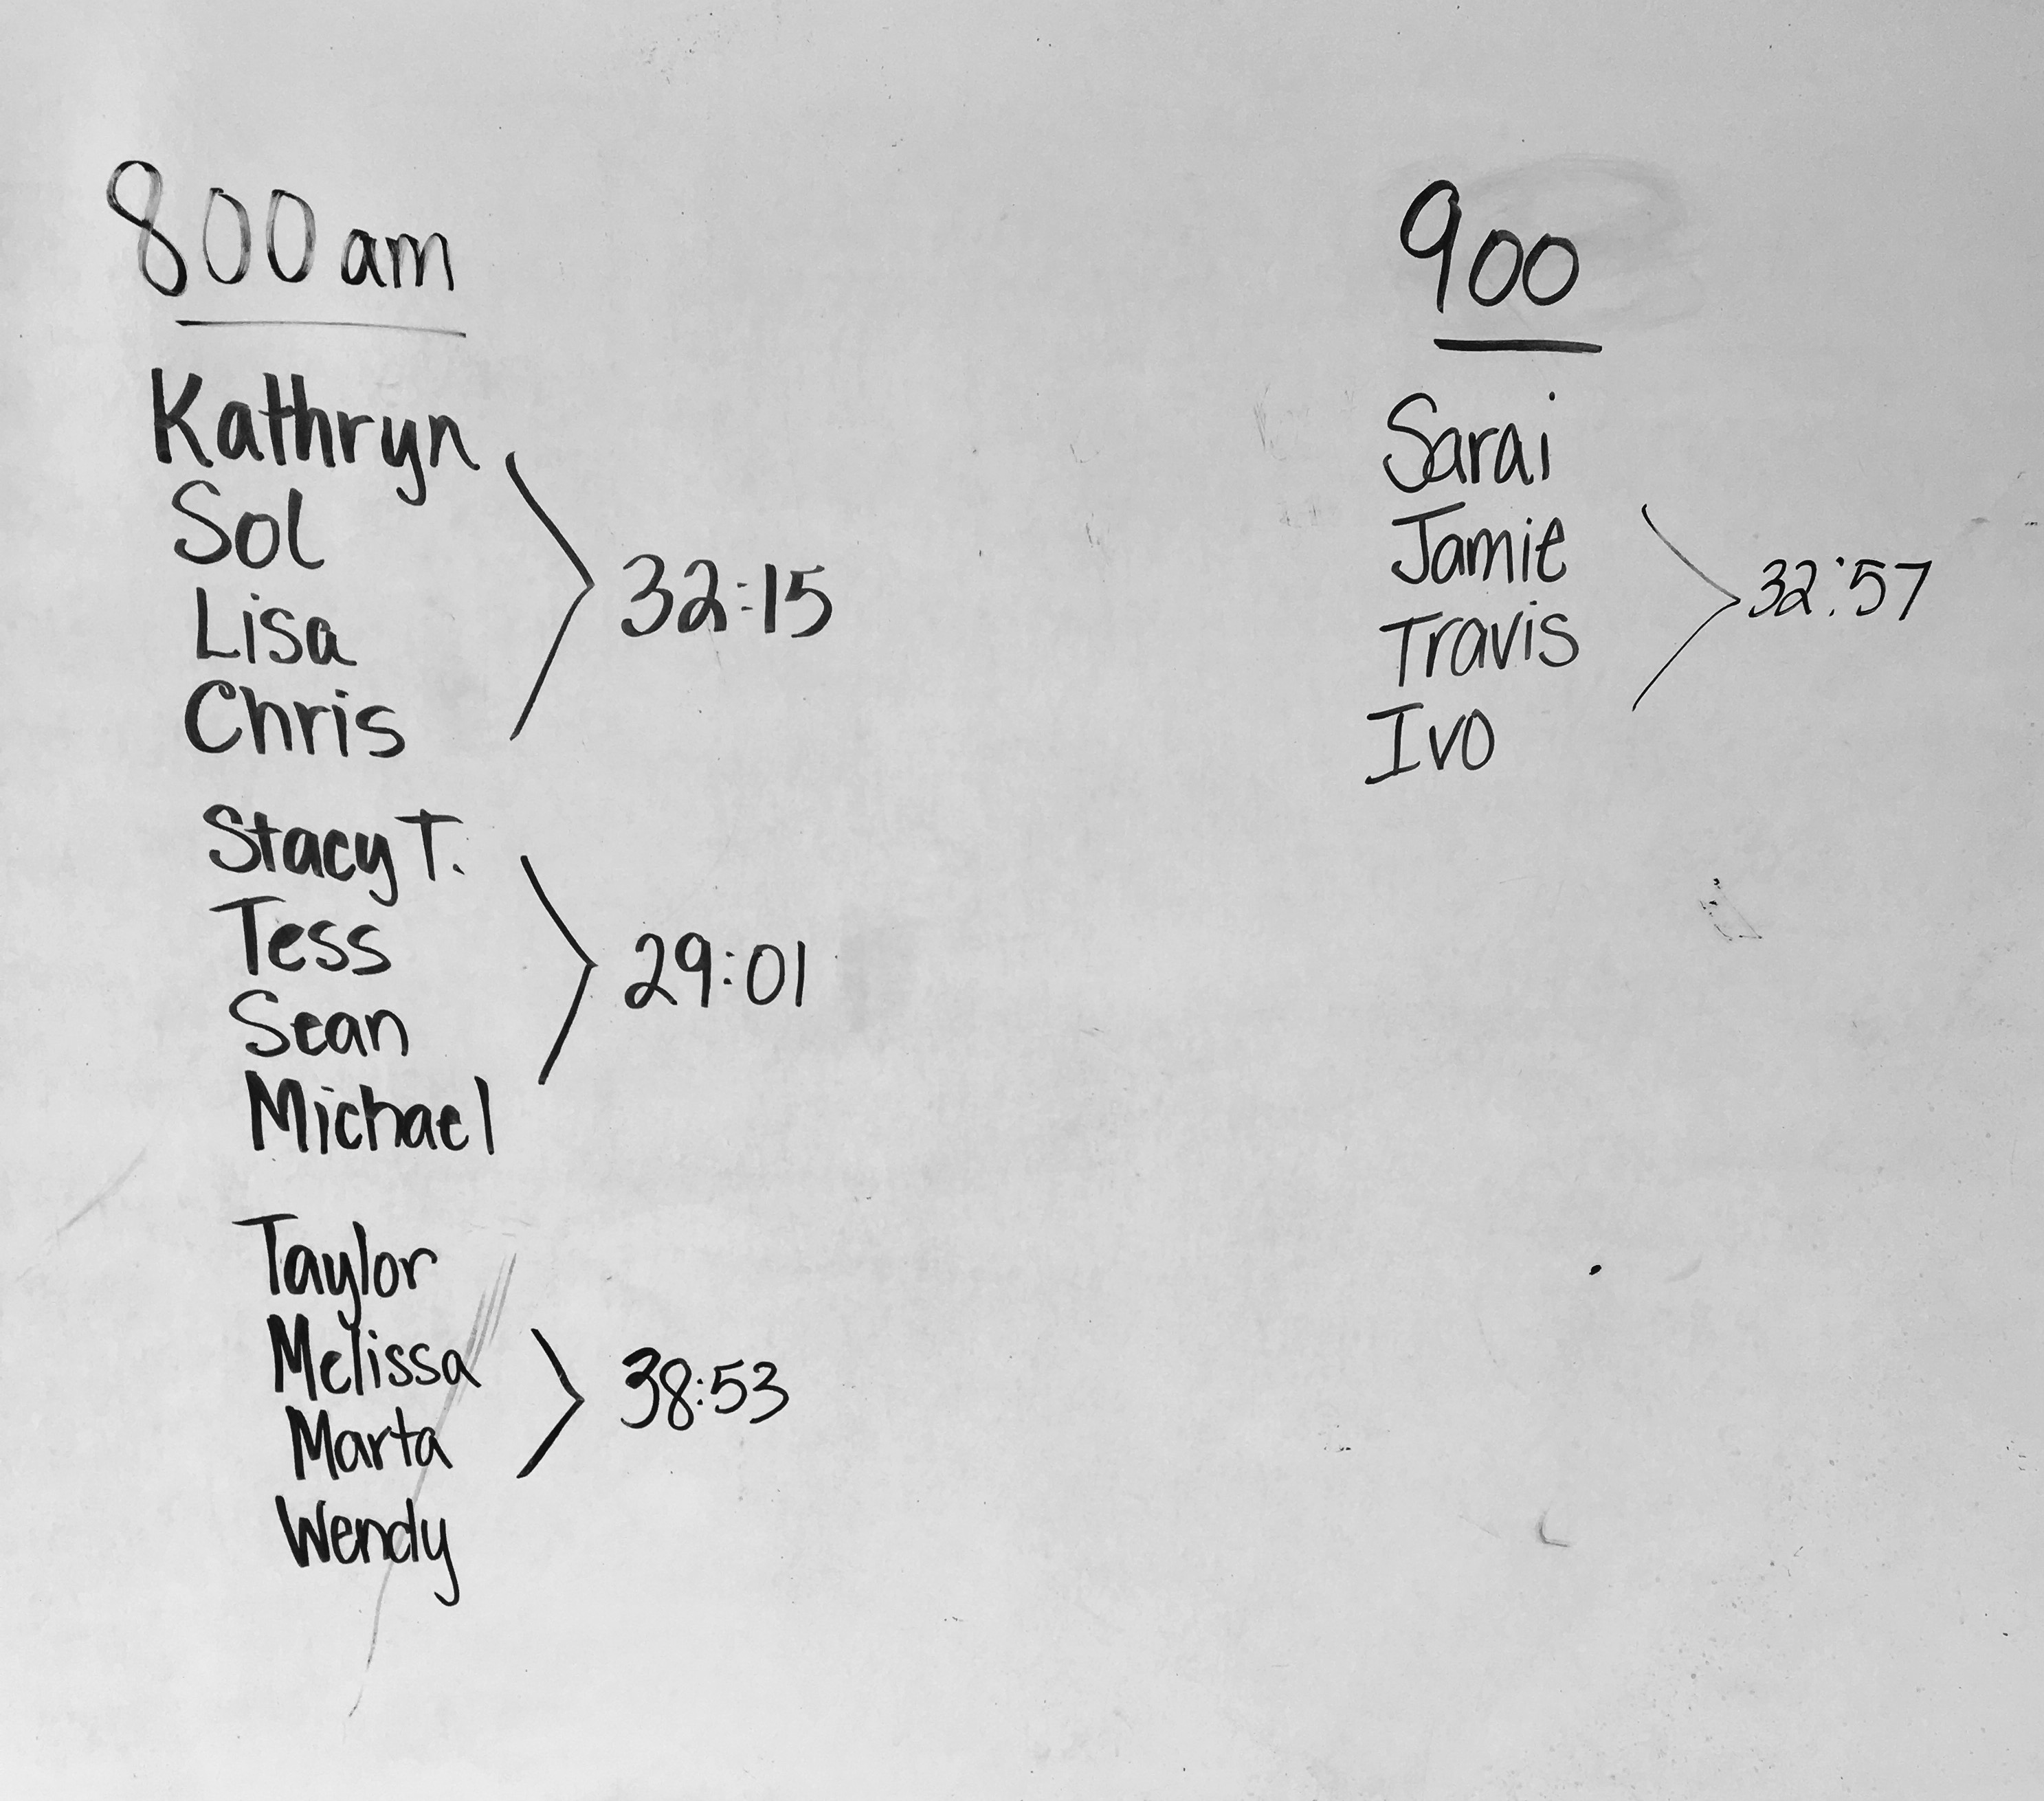 800 am
Kathryn
Sol
Lisa
Chris
32:15
Stacy T.
Tess
Sean
Michael
29:01
Taylor
Melissa
Marta
Wendy
38:53
900
Sarai
Jamie
Travis
Ivo
32:57